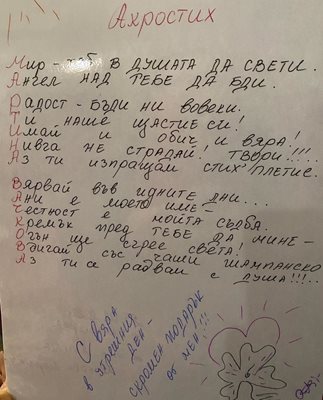 Акростих
Мир - хоб в душата да свети.
Ангел над тебе да бди.
Радост - бъди ни вовеки.
Ти наше щастие си!
Имай и обич и вяра!
Нивга не страдай! Твори!!!..
Аз ти изпращам стих плетие.
Вярвай във идните дни...
Ани е моето име -
Честност е мойта съдба.
Кремък пред тебе да мине -
Огън ще сгрее света!
Вдигай със чаши шампанско
Аз ти се радвам с душа!!!..
С вяра
в утрешния
ден -
скромен подарък
от мен!!!